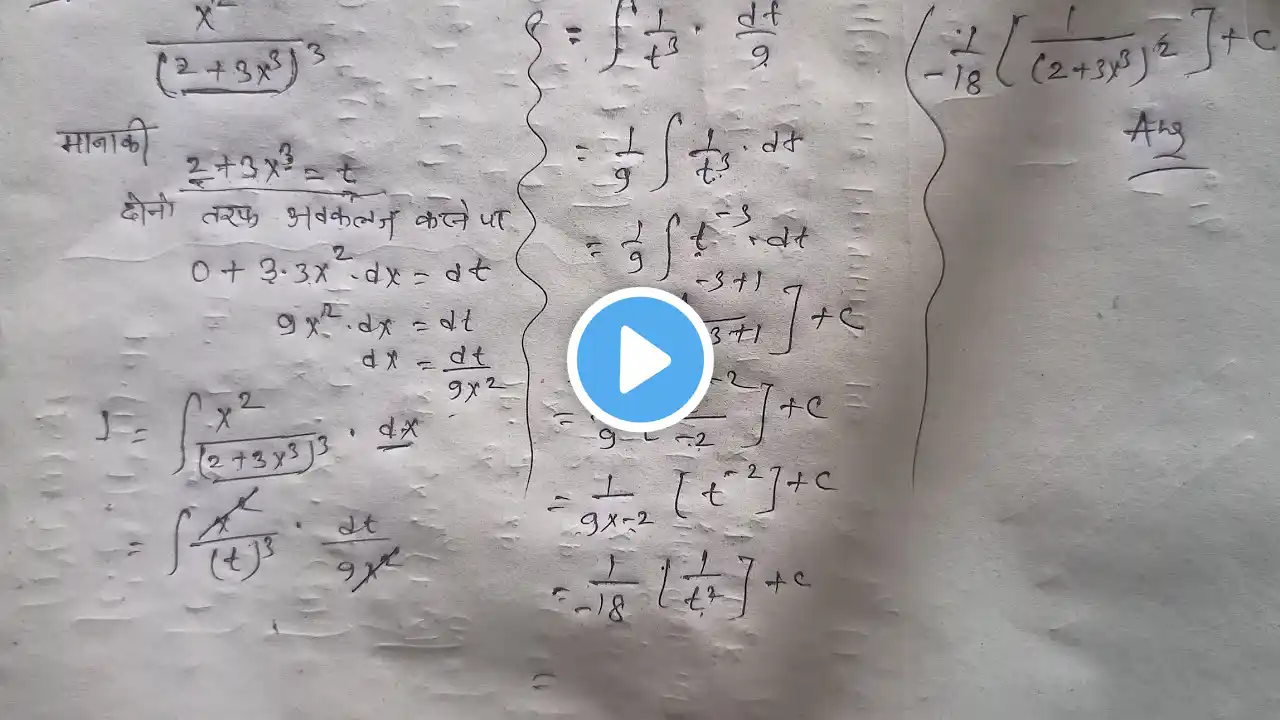 x²
(2 + 3x³)³
मानाकी
2 + 3x³ = t
दोनो तरफ अवकलन करने पर
0 + 3·3x²·dx = dt
9x²·dx = dt
dx = dt/9x²
I = ∫ x²/(2+3x³)³ · dx
= ∫ x²/(t)³ · dt/9x²
= ∫ 1/t³ · dt/9
= 1/9 ∫ 1/t³ · dt
= 1/9 ∫ t⁻³ · dt
-3+1
3+1 ] + C
= 9 -2/-2 ] + C
= 1/9x-2 [ t⁻² ] + C
= 1/-18 [ 1/t² ] + C
=
1/-18 [ 1/(2+3x³)² ] + C
Ans